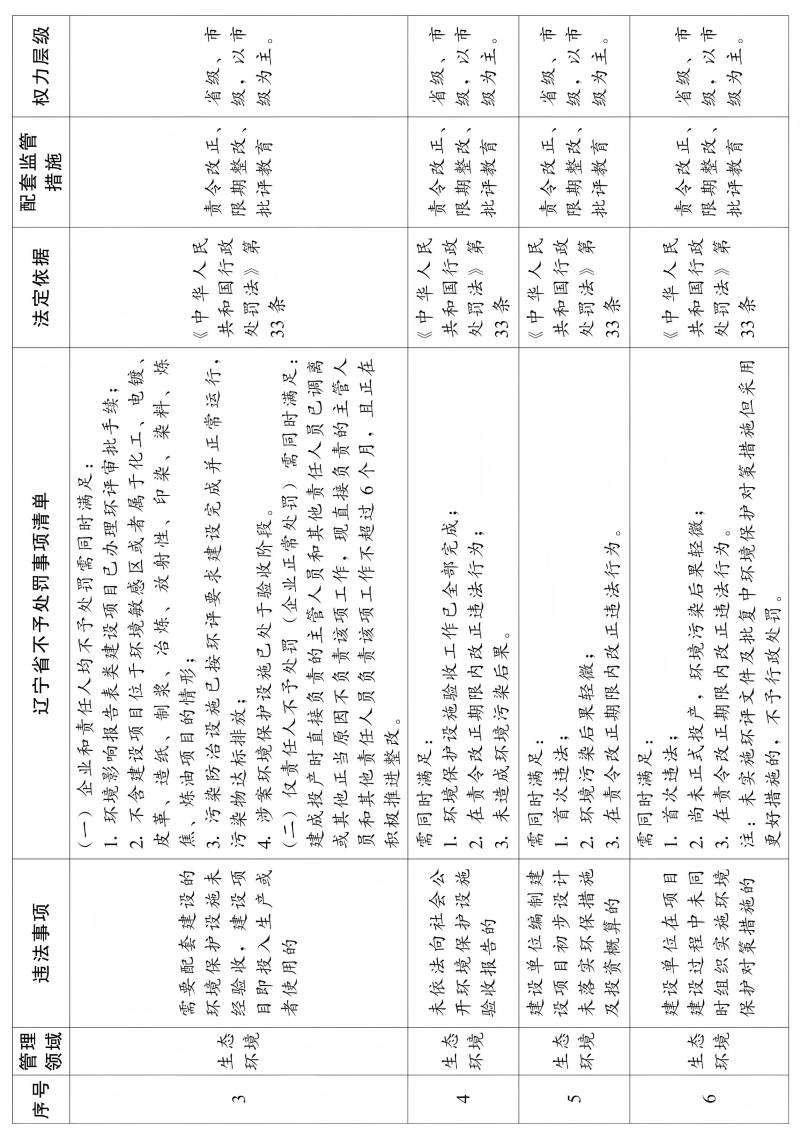 序号
管理
领域
违法事项
辽宁省不予处罚事项清单
法定依据
配套监管
措施
权力层级
3
生态
环境
需要配套建设的
环境保护设施未
经验收，建设项
目即投入生产或
者使用的
（一）企业和责任人均不予处罚需同时满足：
1. 环境影响报告表类建设项目已办理环评审批手续；
2. 不含建设项目位于环境敏感区或者属于化工、电镀、
皮革、造纸、制浆、冶炼、放射性、印染、染料、炼
焦、炼油项目的情形；
3. 污染防治设施已按环评要求建设完成并正常运行，
污染物达标排放；
4. 涉案环境保护设施已处于验收阶段。
（二）仅责任人不予处罚（企业正常处罚）需同时满足：
建成投产时直接负责的主管人员和其他责任人员已调离
或其他正当原因不负责该项工作，现直接负责的主管人
员和其他责任人员负责该项工作不超过 6 个月，且正在
积极推进整改。
《中华人民
共和国行政
处罚法》第
33 条
责令改正、
限期整改、
批评教育
省级、市
级，以市
级为主。
4
生态
环境
未依法向社会公
开环境保护设施
验收报告的
需同时满足：
1. 环境保护设施验收工作已全部完成；
2. 在责令改正期限内改正违法行为；
3. 未造成环境污染后果。
《中华人民
共和国行政
处罚法》第
33 条
责令改正、
限期整改、
批评教育
省级、市
级，以市
级为主。
5
生态
环境
建设单位编制建
设项目初步设计
未落实环保措施
及投资概算的
需同时满足：
1. 首次违法；
2. 环境污染后果轻微；
3. 在责令改正期限内改正违法行为。
《中华人民
共和国行政
处罚法》第
33 条
责令改正、
限期整改、
批评教育
省级、市
级，以市
级为主。
6
生态
环境
建设单位在项目
建设过程中未同
时组织实施环境
保护对策措施的
需同时满足：
1. 首次违法；
2. 尚未正式投产，环境污染后果轻微；
3. 在责令改正期限内改正违法行为。
注：未实施环评文件及批复中环境保护对策措施但采用
更好措施的，不予行政处罚。
《中华人民
共和国行政
处罚法》第
33 条
责令改正、
限期整改、
批评教育
省级、市
级，以市
级为主。